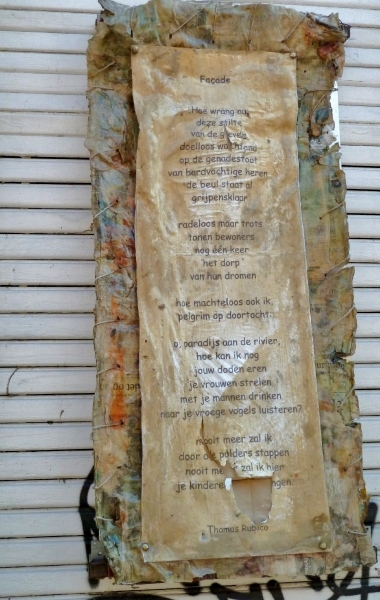 Façade
Hoe wrang nu
deze stilte
van de gevels
doelloos wachtend
op de genadestoot
van hardvochtige heren
de beul staat al
grijpensklaar
radeloos maar trots
tonen bewoners
nog één keer
'het dorp'
van hun dromen
hoe machteloos ook ik,
pelgrim op doortocht.
o, paradijs aan de rivier,
hoe kan ik nog
jouw doden eren
je vrouwen strelen
met je mannen drinken
naar je vroege vogels luisteren?
nooit meer zal ik
door de polders stappen
nooit zal ik hier
je
Thomas Rubico